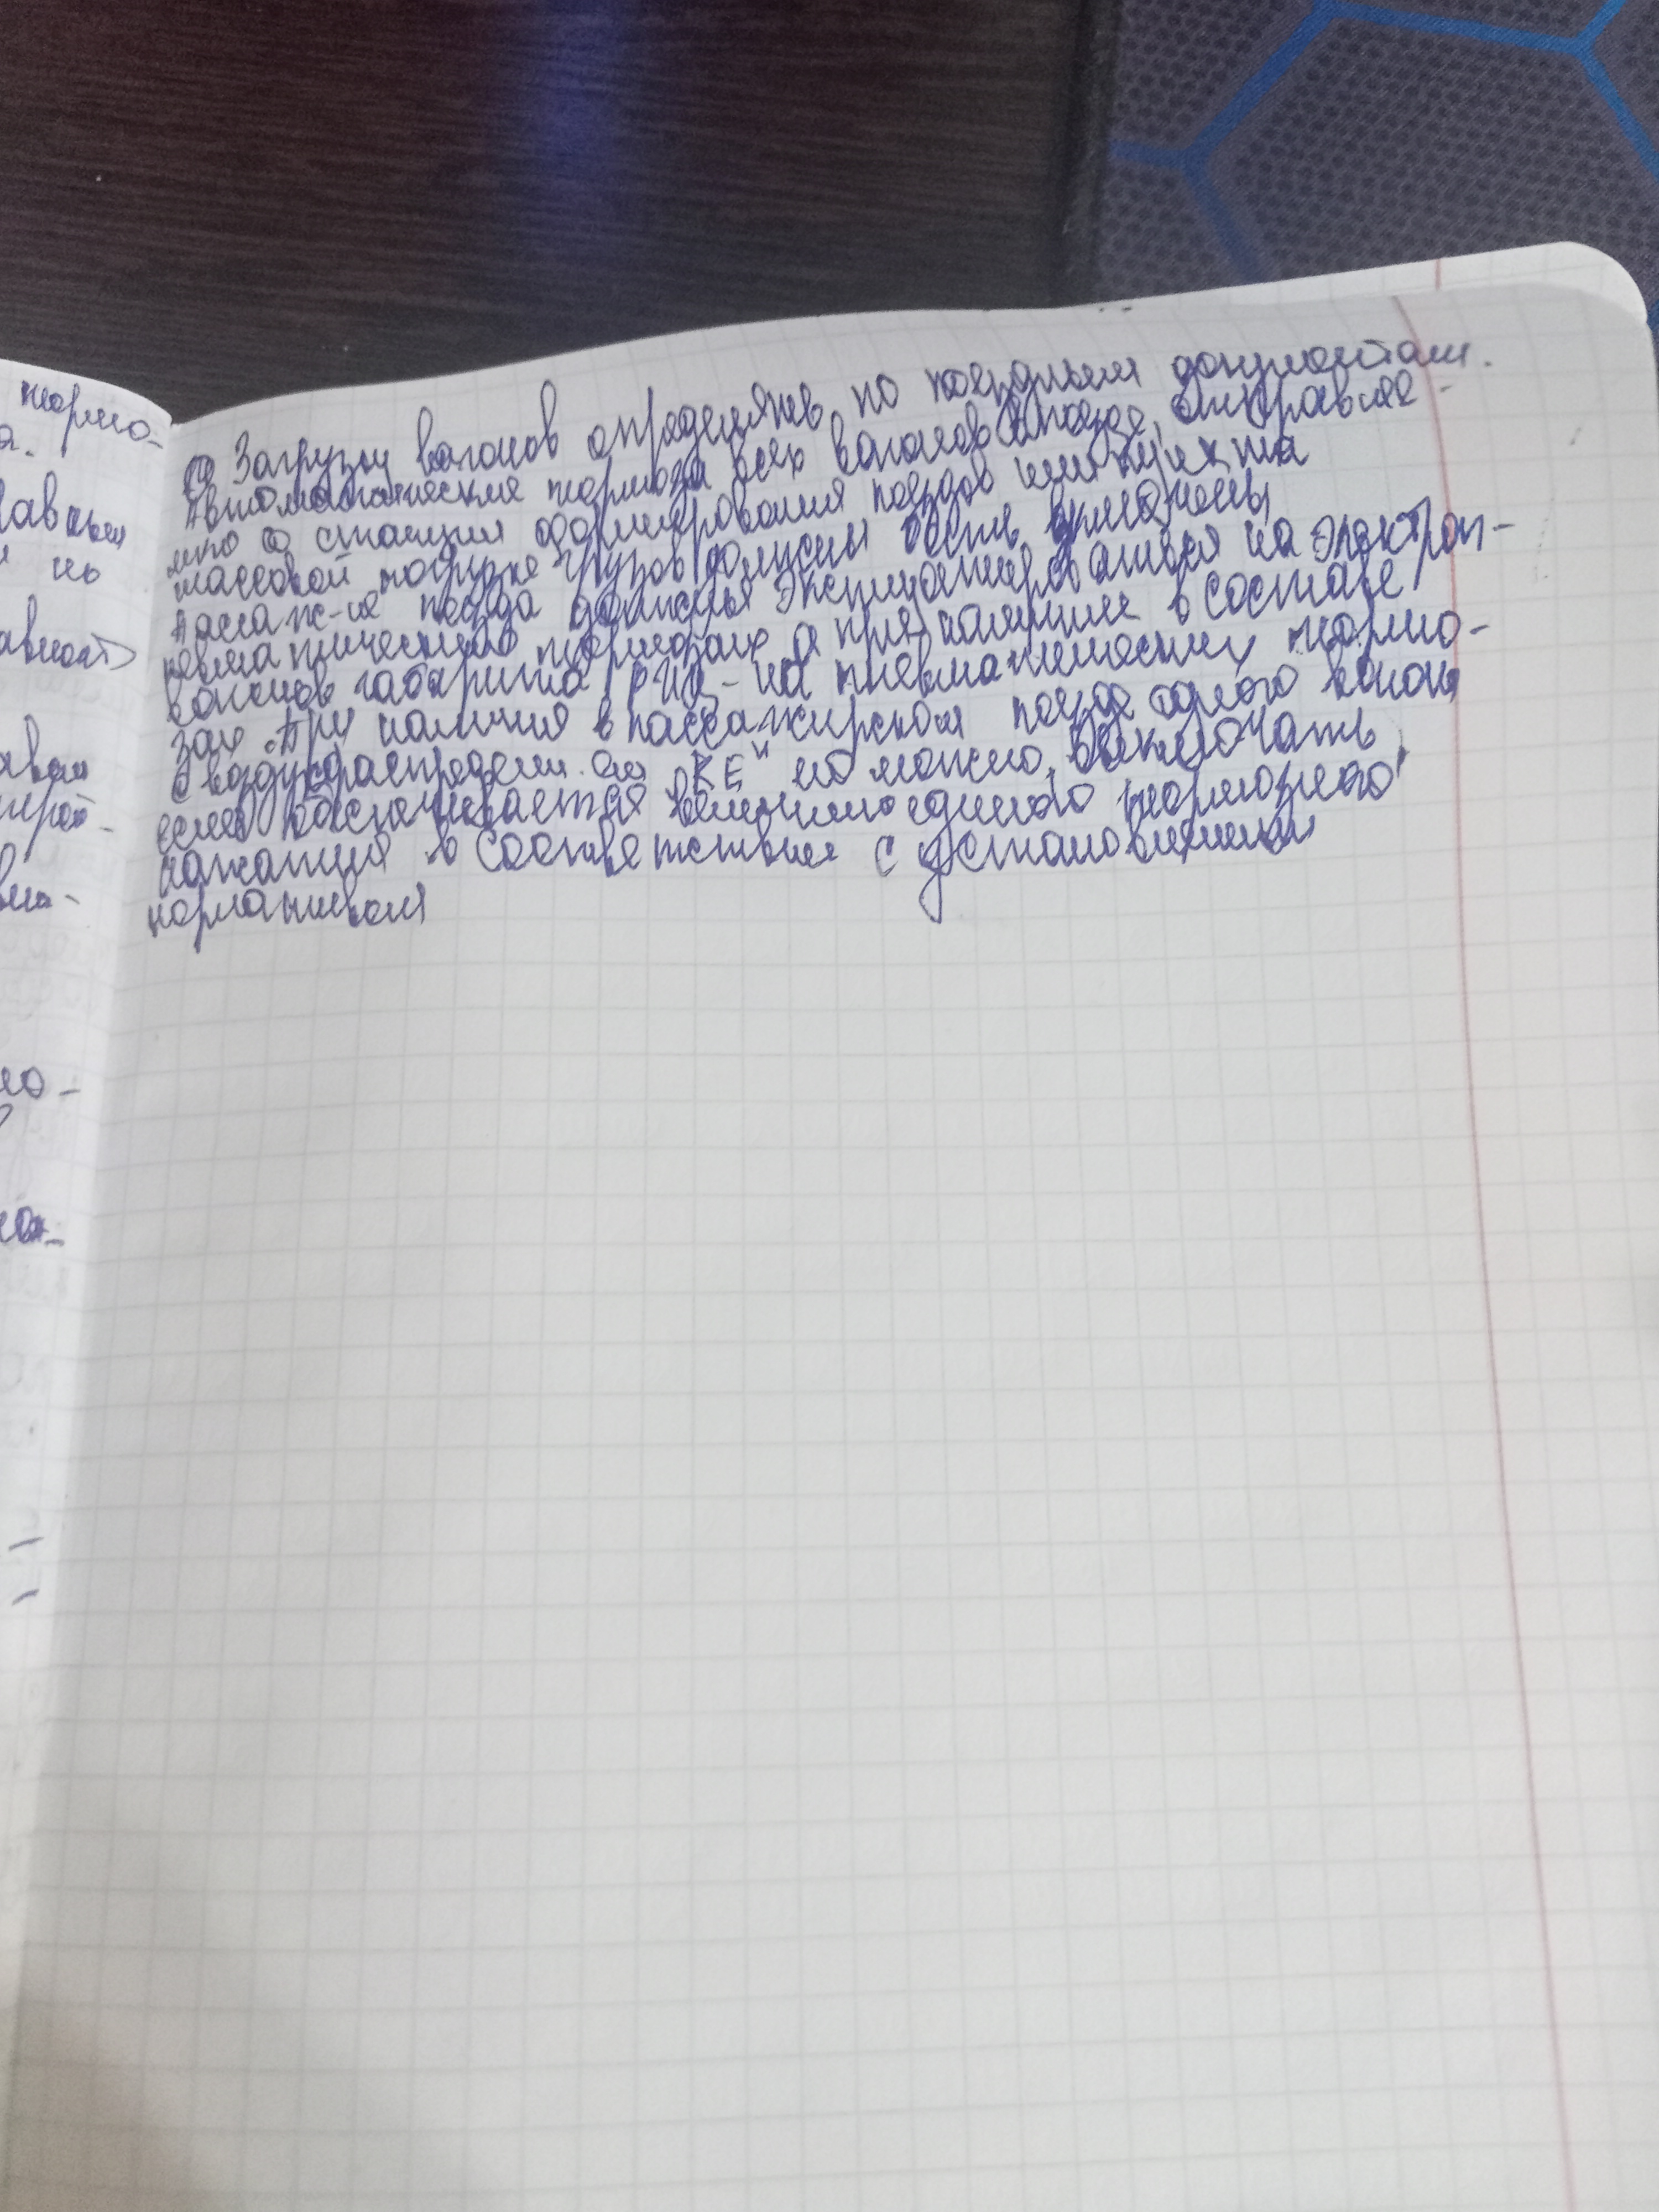 тормо-
а.
равным
но
Загрузку вагонов определять по поездным документам.
Автоматические тормоза всех вагонов в поезде, отправляе-
мого со станции формирования поездов или пункта
массовой погрузке грузов должны быть включены
Пассаж-ие поезда должны эксплуатироваться на электроп-
невматических тормозах а при наличие в составе
вагонов габарита РИЦ - на пневматических тормо-
зах. При наличия в пассажирском поезде одного вагона
с воздухораспредели-ем "КЕ" но можно выключать
если обеспечивается величина единого тормозного
нажатия в соответствии с установленными
нормативами